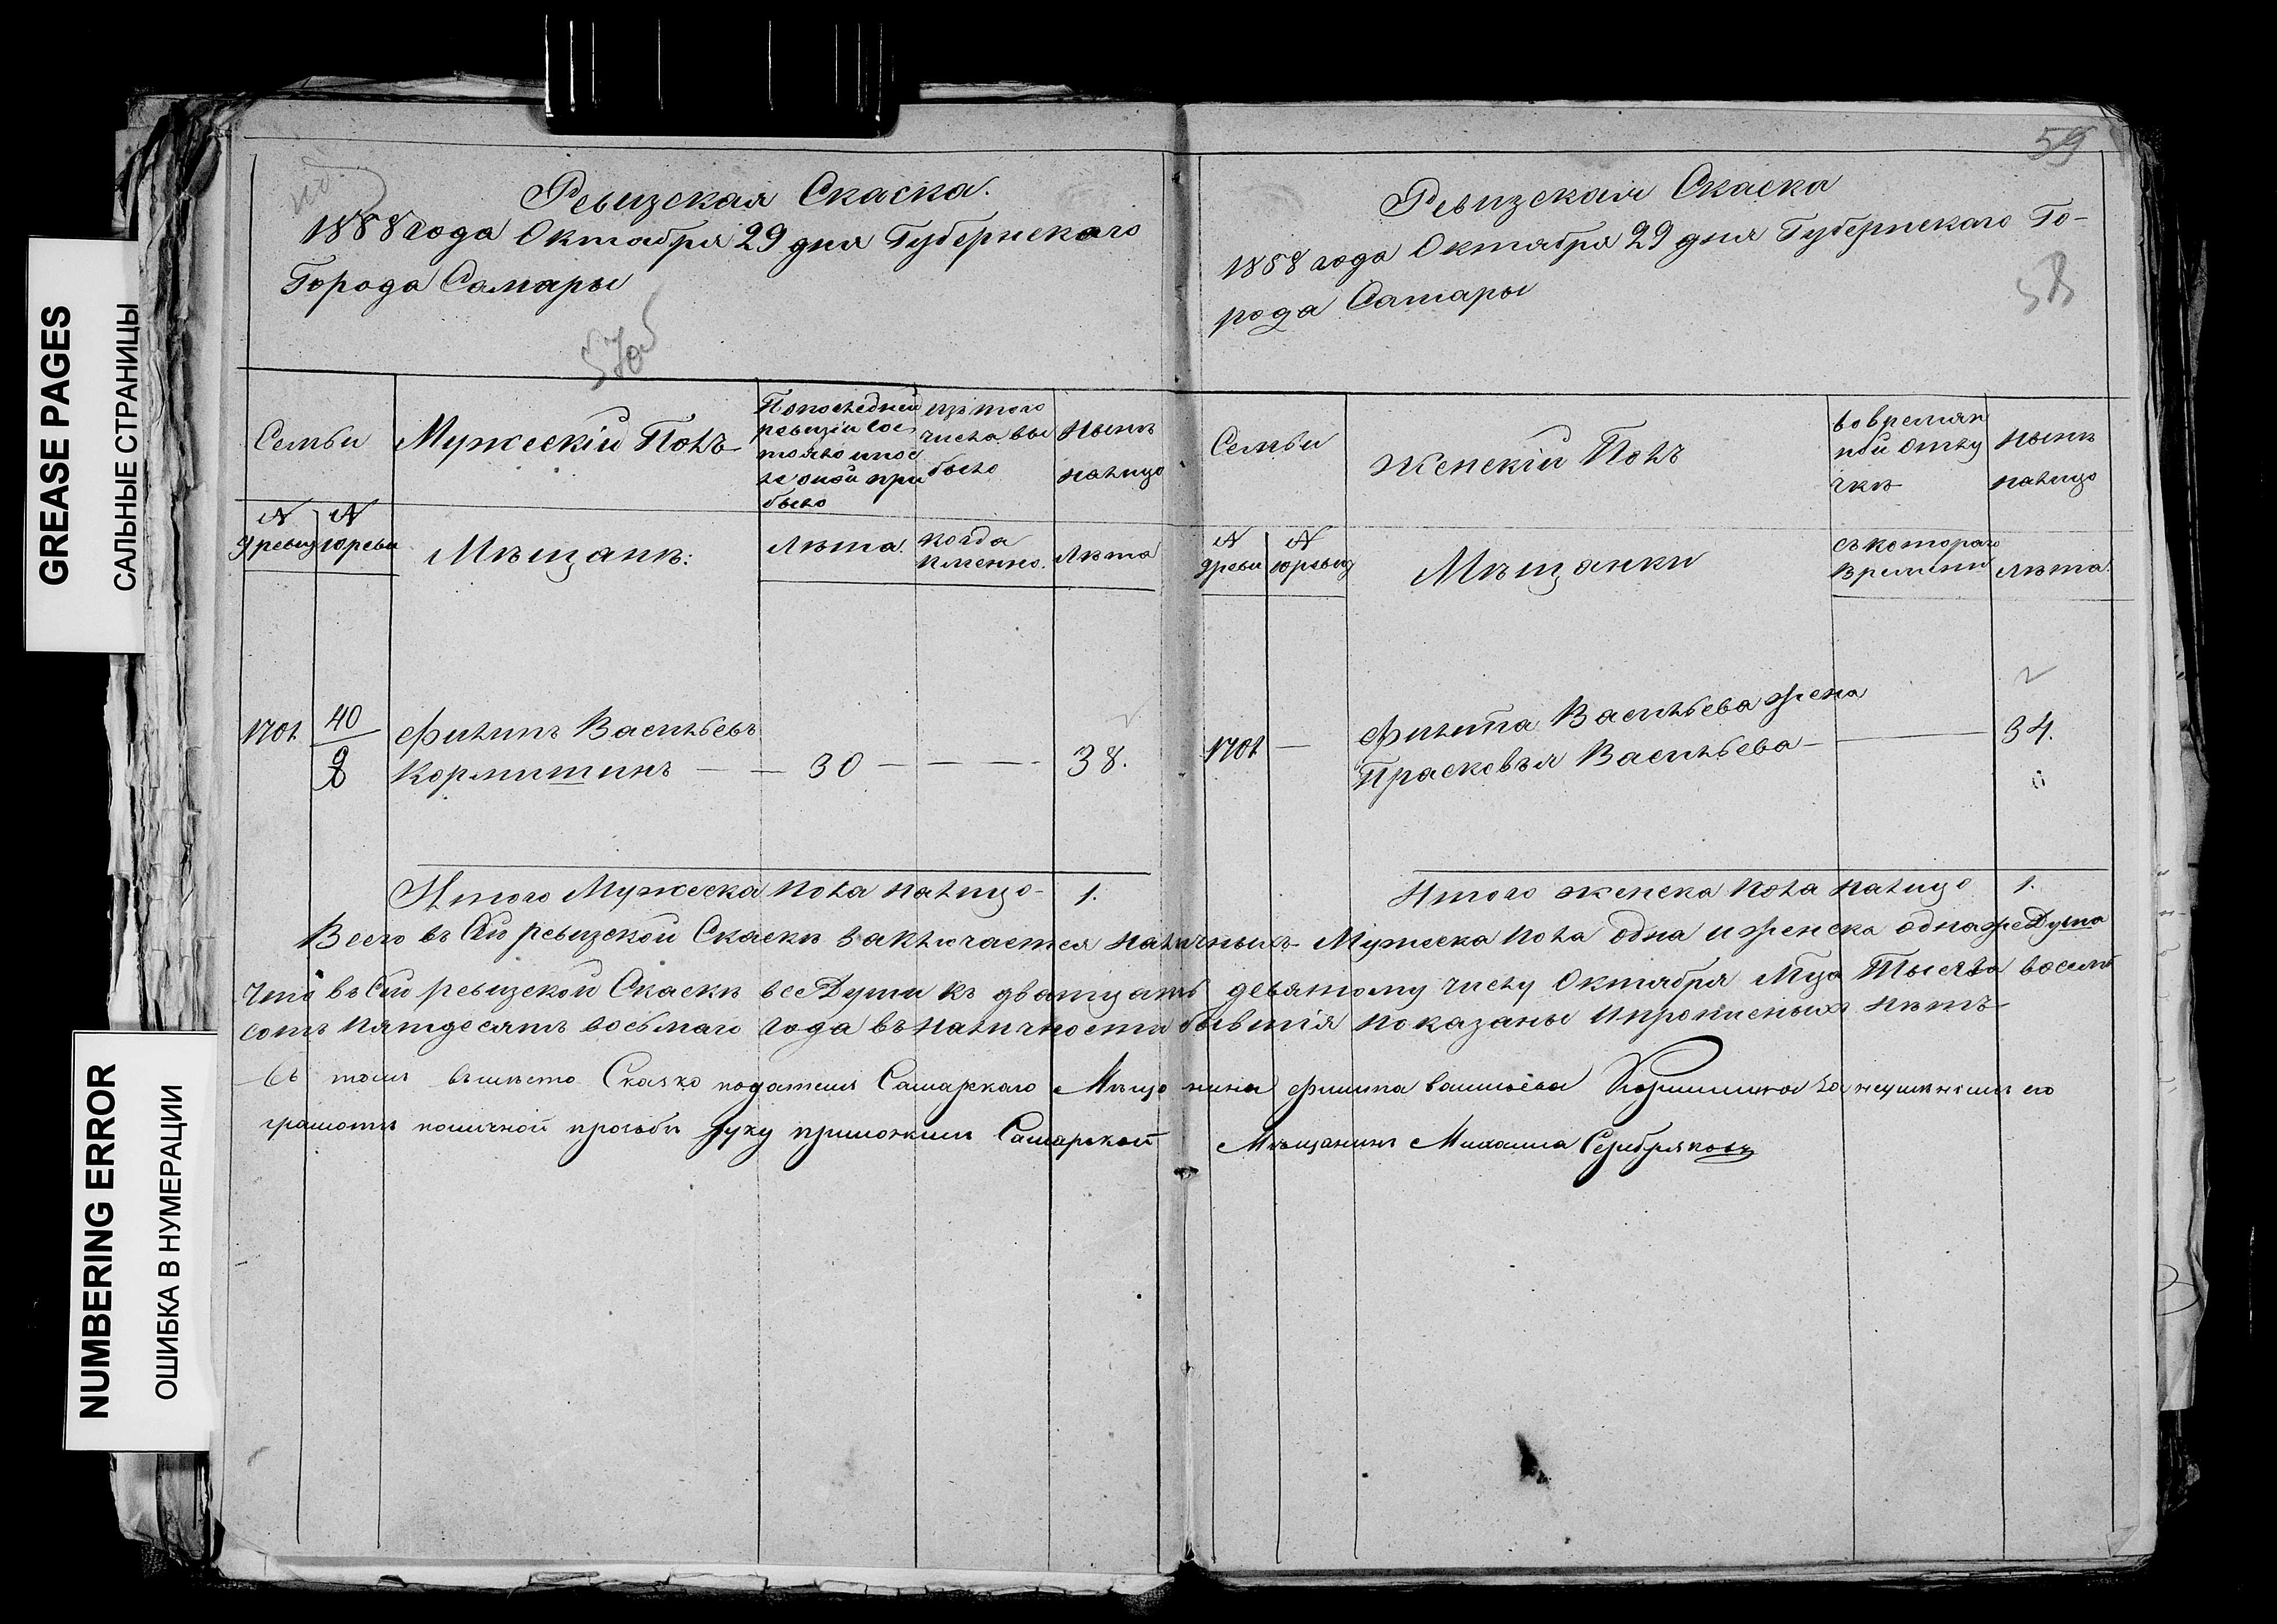 GREASE PAGES
САЛЬНЫЕ СТРАНИЦЫ
NUMBERING ERROR
ОШИБКА В НУМЕРАЦИИ
Ревизская Скаска.
1858 года Октября 29 дня Губернскаго
Города Самары
57об
Семьи
Мужескій Полъ
Попоследней
ревизіи сос
тояло ипос
ле оной при
было
изъ того
числа вы
было
Нынѣ
налицо
№ 9 ревиз
№ 10 реви
Мѣщанѣ:
Лѣта.
когда
Именно.
Лѣта
1701
40
Филипъ Васильевъ
Кормишинъ — — 30 — — — 38.
Итого Мужеска пола налицо - 1.
59
Ревизская Скаска
1858 года Октября 29 дня Губернскаго Го-
рода Самары
58
Семьи
Женскій Полъ
Во времян
ной отлу
чкѣ
нынѣ
налицо
№ 9 реви
№ 10 ревиз
Мѣщанки
съ котораго
Времени
Лѣта.
1701 —
Филипа Васильева жена
Прасковья Васильева — — 34.
Итого женска пола налицо 1.
Всего въ Сей ревизской Скаскѣ заключается наличныхъ Мужеска пола одна и женска одна же Душа
Что въ Сей ревизской Скаскѣ все Души къ дватцать девятому числу Октября Мца Тысяча восемь
сотъ пятдесятъ восьмаго года въ наличности бывшія показаны и прописныхъ нѣтъ
Въ томъ вмѣсто Скаско подателя Самарскаго Мѣщанина Филипа Васильева Кормишина за неумѣніемъ его
грамоты поличной прозьбѣ руку приложилъ Самарской Мѣщанинъ Михаила Серебряковъ